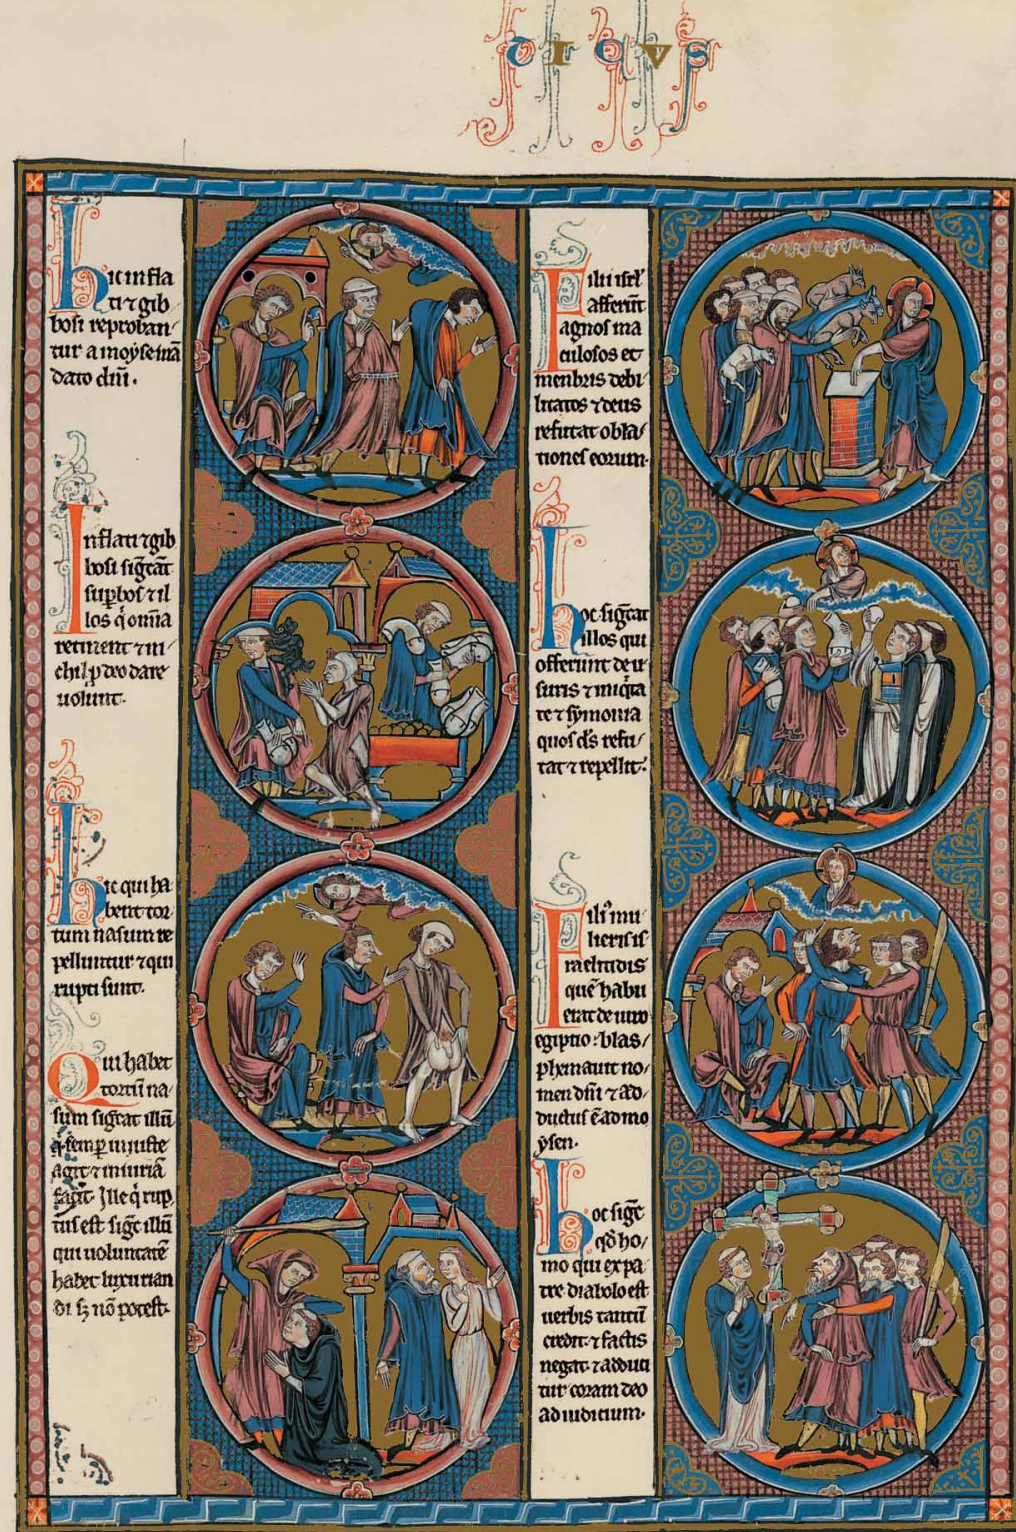 TICVS
hic infla
ti ⁊ gib
bosi reproban
tur a moyse mā
dato dn̄i.
Inflati ⁊ gib
bosi sigt̄at
suꝑbos ⁊ il
los q̇ om̄ia
retinent ⁊ ni
chil ꝓ deo dare
uolunt.
hic qui ha
bent tor
tum nasum re
pelluntur ⁊ qui
rupti sunt.
Qui habet
tortū na
sum sigt̄at illū
q̇ semꝑ iniuste
agit ⁊ iniuriā
facit. Ille q̇ rup
tus est sigt̄ illū
qui uoluntatē
habet luxurian
di sꝫ nō potest.
Filii isrl̄
afferūt
agnos ma
culosos et
menbris debi
litatos ⁊ deus
refutat obla
tiones eorum.
hoc sigt̄at
illos qui
offerunt de u
suris ⁊ iniq̇ta
te ⁊ symonia
quos dṡ refu
tat ⁊ repellit.
Filiꝰ mu
lieris is
raelitidis
quē habu
erat de uiro
egiptio blas
phemauit no
men dn̄i ⁊ ad
ductus ē ad mo
ysen.
hoc sigt̄
qd̄ ho
mo qui ex pa
tre diabolo est
uerbis tantū
credit ⁊ factis
negat ⁊ adduci
tur coram deo
ad iudicium.